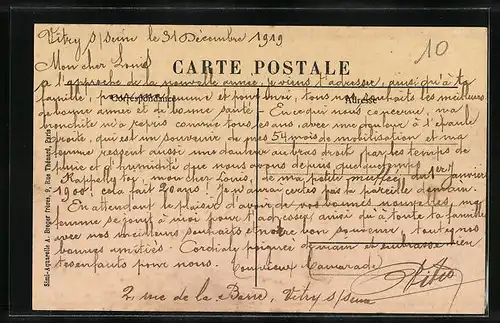 Vitry s/seine le 31 Décembre 1919
10
Mon cher Louis
CARTE POSTALE
a l'approche de la nouvelle année, je viens t'adresser, ainsi qu'à ta
Correspondance
Adresse
famille, pour ma femme et pour moi, tous nos souhaits les meilleurs
de bonne année et de bonne santé. En ce qui nous concerne, ma
bronchite m'a repris comme tous les ans, avec une douleur à l'épaule
droite, qui est un souvenir de mes 54 mois de mobilisation et ma
femme ressent aussi une douleur au bras droit par les temps de
pluie et d'humidité que nous avons depuis quelque temps.
Rappelle toi, mon cher Louis, de ma petite du 1er janvier
1900! cela fait 20 ans! Je n'aurai certes pas la pareille demain.
En attendant le plaisir d'avoir de vos bonnes nouvelles, ma
femme se joint à moi pour t'adresser ainsi qu'à toute ta famille
avec nos meilleurs souhaits et notre bon souvenir, toutes nos
bonnes amitiés. Cordiale poignée de main et embrasse bien
tes enfants pour nous. Ton vieux Camarade
2 rue de la Barre, Vitry s/seine
Simi-Aquarelle A. Breger frères, 9, Rue Thénard, Paris